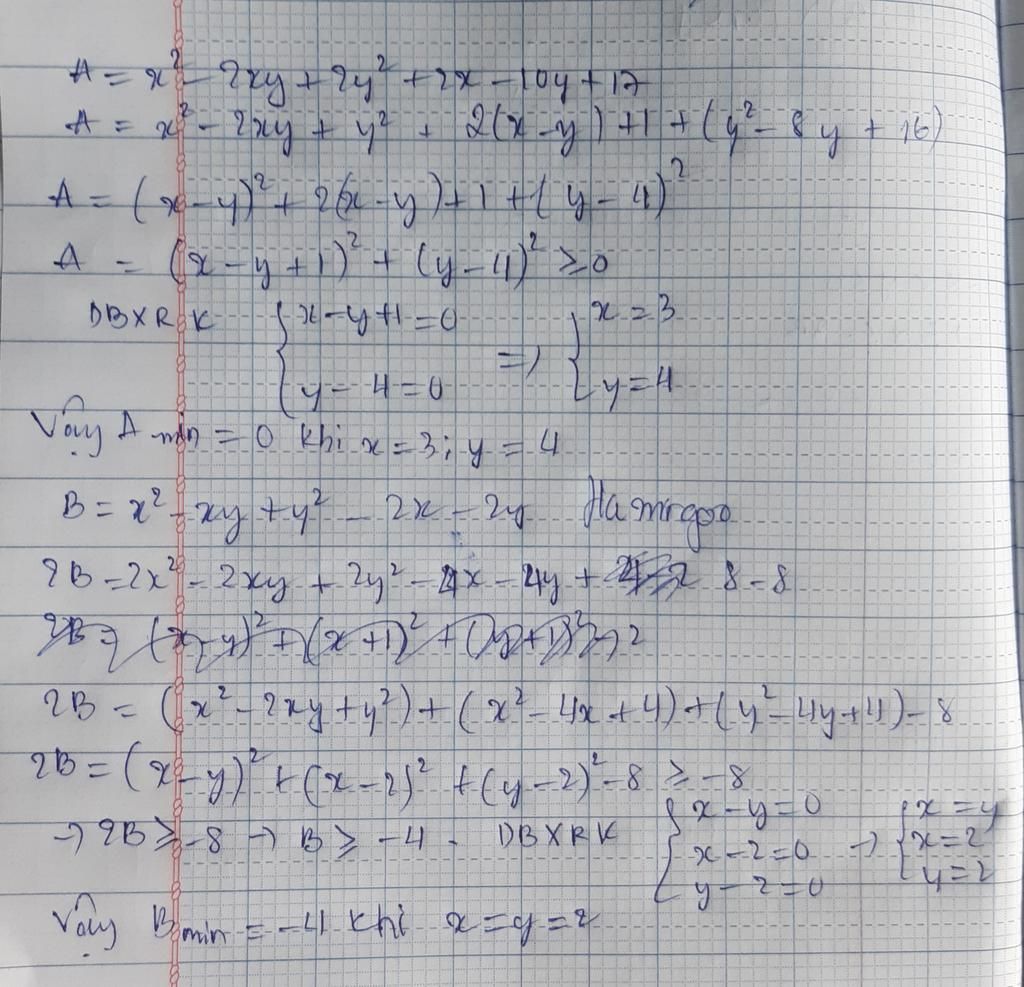 A = x² - 2xy + 2y² + 2x - 10y + 17
A = x² - 2xy + y² + 2(x-y) + 1 + (y² - 8y + 16)
A = (x-y)² + 2(x-y) + 1 + (y-4)²
A = (x-y+1)² + (y-4)² ≥ 0
DBXRK { x-y+1 = 0 => { x = 3
y - 4 = 0 y = 4
Vậy A min = 0 khi x = 3; y = 4
B = x² - xy + y² - 2x - 2y
2B = 2x² - 2xy + 2y² - 4x - 4y + 8 - 8
2B = (x² - 2xy + y²) + (x² - 4x + 4) + (y² - 4y + 4) - 8
2B = (x-y)² + (x-2)² + (y-2)² - 8 ≥ -8
→ 2B ≥ -8 → B ≥ -4. DBXRK { x-y = 0 → { x = y
x-2 = 0 x = 2
y-2 = 0 y = 2
Vậy B min = -4 khi x = y = 2